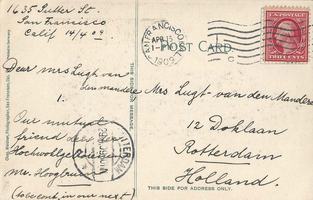 1635 Sutter St.
San Francisco
Calif 14/4 09
Dear Mrs Lugt van
den Mandere
1.
Our mutual
friend der
Hochwollgeb
Mr. Hoogbruin
(to be cont. in our next)
THIS SPACE FOR MESSAGE.
SAN FRANCISCO, CAL.
APR 15
1909
POST CARD
U.S. POSTAGE
TWO CENTS
Mrs Lugt-van den Mandere
12 Doklaan
Rotterdam
Holland.
THIS SIDE FOR ADDRESS ONLY.